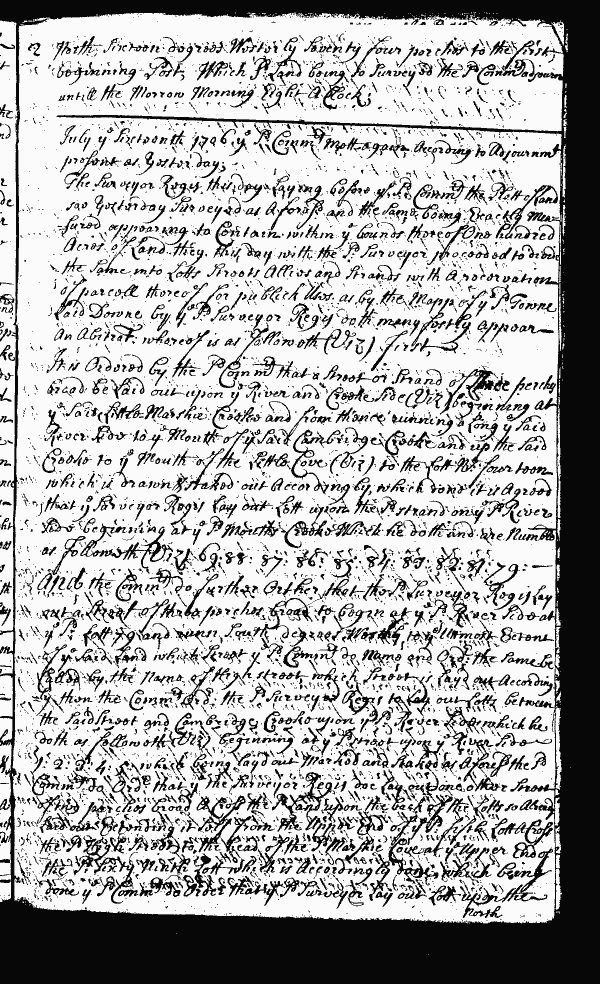 2 North, Sixteen degrees Westerly Seventy four perches to the first
beginning Post, Which Sd. Land being so Surveyed the Sd. Commrs. adjourn
untill the Morrow Morning Eight a Clock;
July ye Sixteenth 1706 ye Sd. Commrs. mett againe according to Adjournmt
present as Yesterday;
The Surveyor Regis, this day Laying before ye Sd. Commrs. the Platt of Land
soe Yesterday Surveyed as aforesd. and the Same being Exactly Mea-
sured appearing to Contain within ye bounds thereof One hundred
Acres of Land they, this day with the Sd. Surveyor proceeded to divide
the Same into Lotts Streets Allies and Strands with A reservation
of parcell thereof for publick Uses, as by the Mapp of ye Sd. Towne
Laid Downe by ye Sd. Surveyor Regis doth manyfestly appear
An Abstract whereof is as followeth (Vizt) first,
It is Ordered by the Sd. Commrs. that a Street or Strand of three perches
broad be Laid out upon ye River and Creeke Side (Viz) beginning at
ye Said Little Marshie Creeke and from thence running a Long ye Said
River Side to ye Mouth of ye Said Cambridge Creeke and up the Said
Creeke to ye Mouth of the Little Cove (Viz) to the Lott No. fourteen
which is drawn & staked out Accordingly, which done it is Agreed
that ye Surveyor Regis Lay out Lott upon the Sd. Strand on ye Sd. River
Side beginning at ye Sd. Mouth Creeke Which he doth and are Numbd
as followeth (Viz) 69: 88: 87: 86: 85: 84: 83: 82: 81: 79:
And the Commrs. do further Order that the Sd. Surveyor Regis Lay
out a Street of three perches broad to begin at ye Sd. River Side at
ye Sd. Lott 79 and runn South degrees Westerly to ye Utmost Extent
of ye Said Land which Street ye Sd. Commrs. do Name and Ordr. the Same be
Called by the Name of High street which Street is Lay'd out According
ly then the Commrs. Ord. the Sd. Surveyor Regis to Lay out Lotts between
the Said Street and Cambridge Creeke upon ye Sd. River Side which he
doth as followeth (Viz) beginning at ye Sd. Street upon ye River Side
1: 2: 3: 4: 5: which being Layd out Marked and Staked as Aforesd. the Sd.
Commrs. do Ordr. that ye the Surveyor Regis doe Lay out one other Street
of two perches broad A Cross the Sd. Land upon the back of the Lotts so Alread
Laid out Extending it Self from the Upper End of ye Sd. fifth Lott A Cross
the Sd. High Street to the head of the Sd. Marshie Cove at ye Upper End of
the Sd. Sixty Ninth Lott which is Accordingly done, which being
done ye Sd. Commrs. do Order that ye Sd. Surveyor Lay out Lott upon the
North